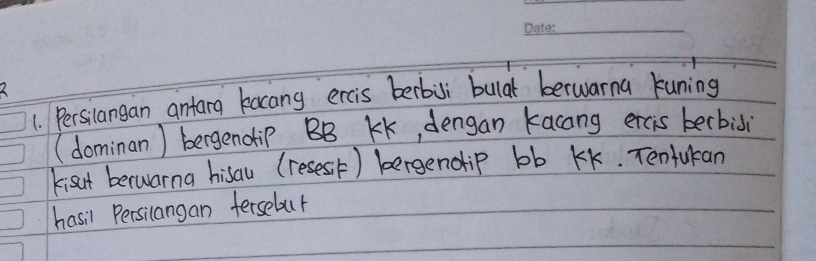 Date:
1. Persilangan antara kacang ercis berbiji bulat berwarna kuning
(dominan) bergenotip BB KK, dengan kacang ercis berbiji
kisut berwarna hijau (resesif) bergenotip bb KK. Tentukan
hasil Persilangan tersebut